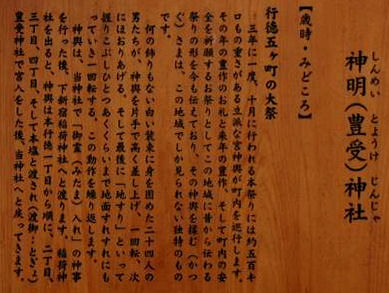 しんめい とようけ じんじゃ
神明(豊受)神社
【歳時・みどころ】
行徳五ヶ町の大祭
三年に一度、十月に行われる本祭りには約五百キ
ロもの重さがある立派な宮神輿が町内を巡行します。
その年の豊作のお礼と来年の豊作、そして町内の安
全を祈願するお祭りとしてこの地域に昔から伝わる
祭りの形を今も伝えており、その神輿を揉む(かつ
ぐ)さまは、この地域でしか見られない独特のもの
です。
何の飾りもない白い装束に身を固めた二十四人の
男たちが、神輿を片手で高く差し上げ、一回転、次
にほおりあげる。そして最後に「地すり」といって
握りこぶしひとつあくくらいまで地面すれすれにも
っていき一回転する。この動作を繰り返します。
神輿は、当神社で「御霊(みたま)入れ」の神事
を行った後、下新宿稲荷神社へと渡ります。稲荷神
社を出ると、神輿は本行徳一丁目から順に、二丁目、
三丁目、四丁目、そして本塩と渡され(渡御:とぎょ)
豊受神社で宮入をした後、当神社へと戻ってきます。